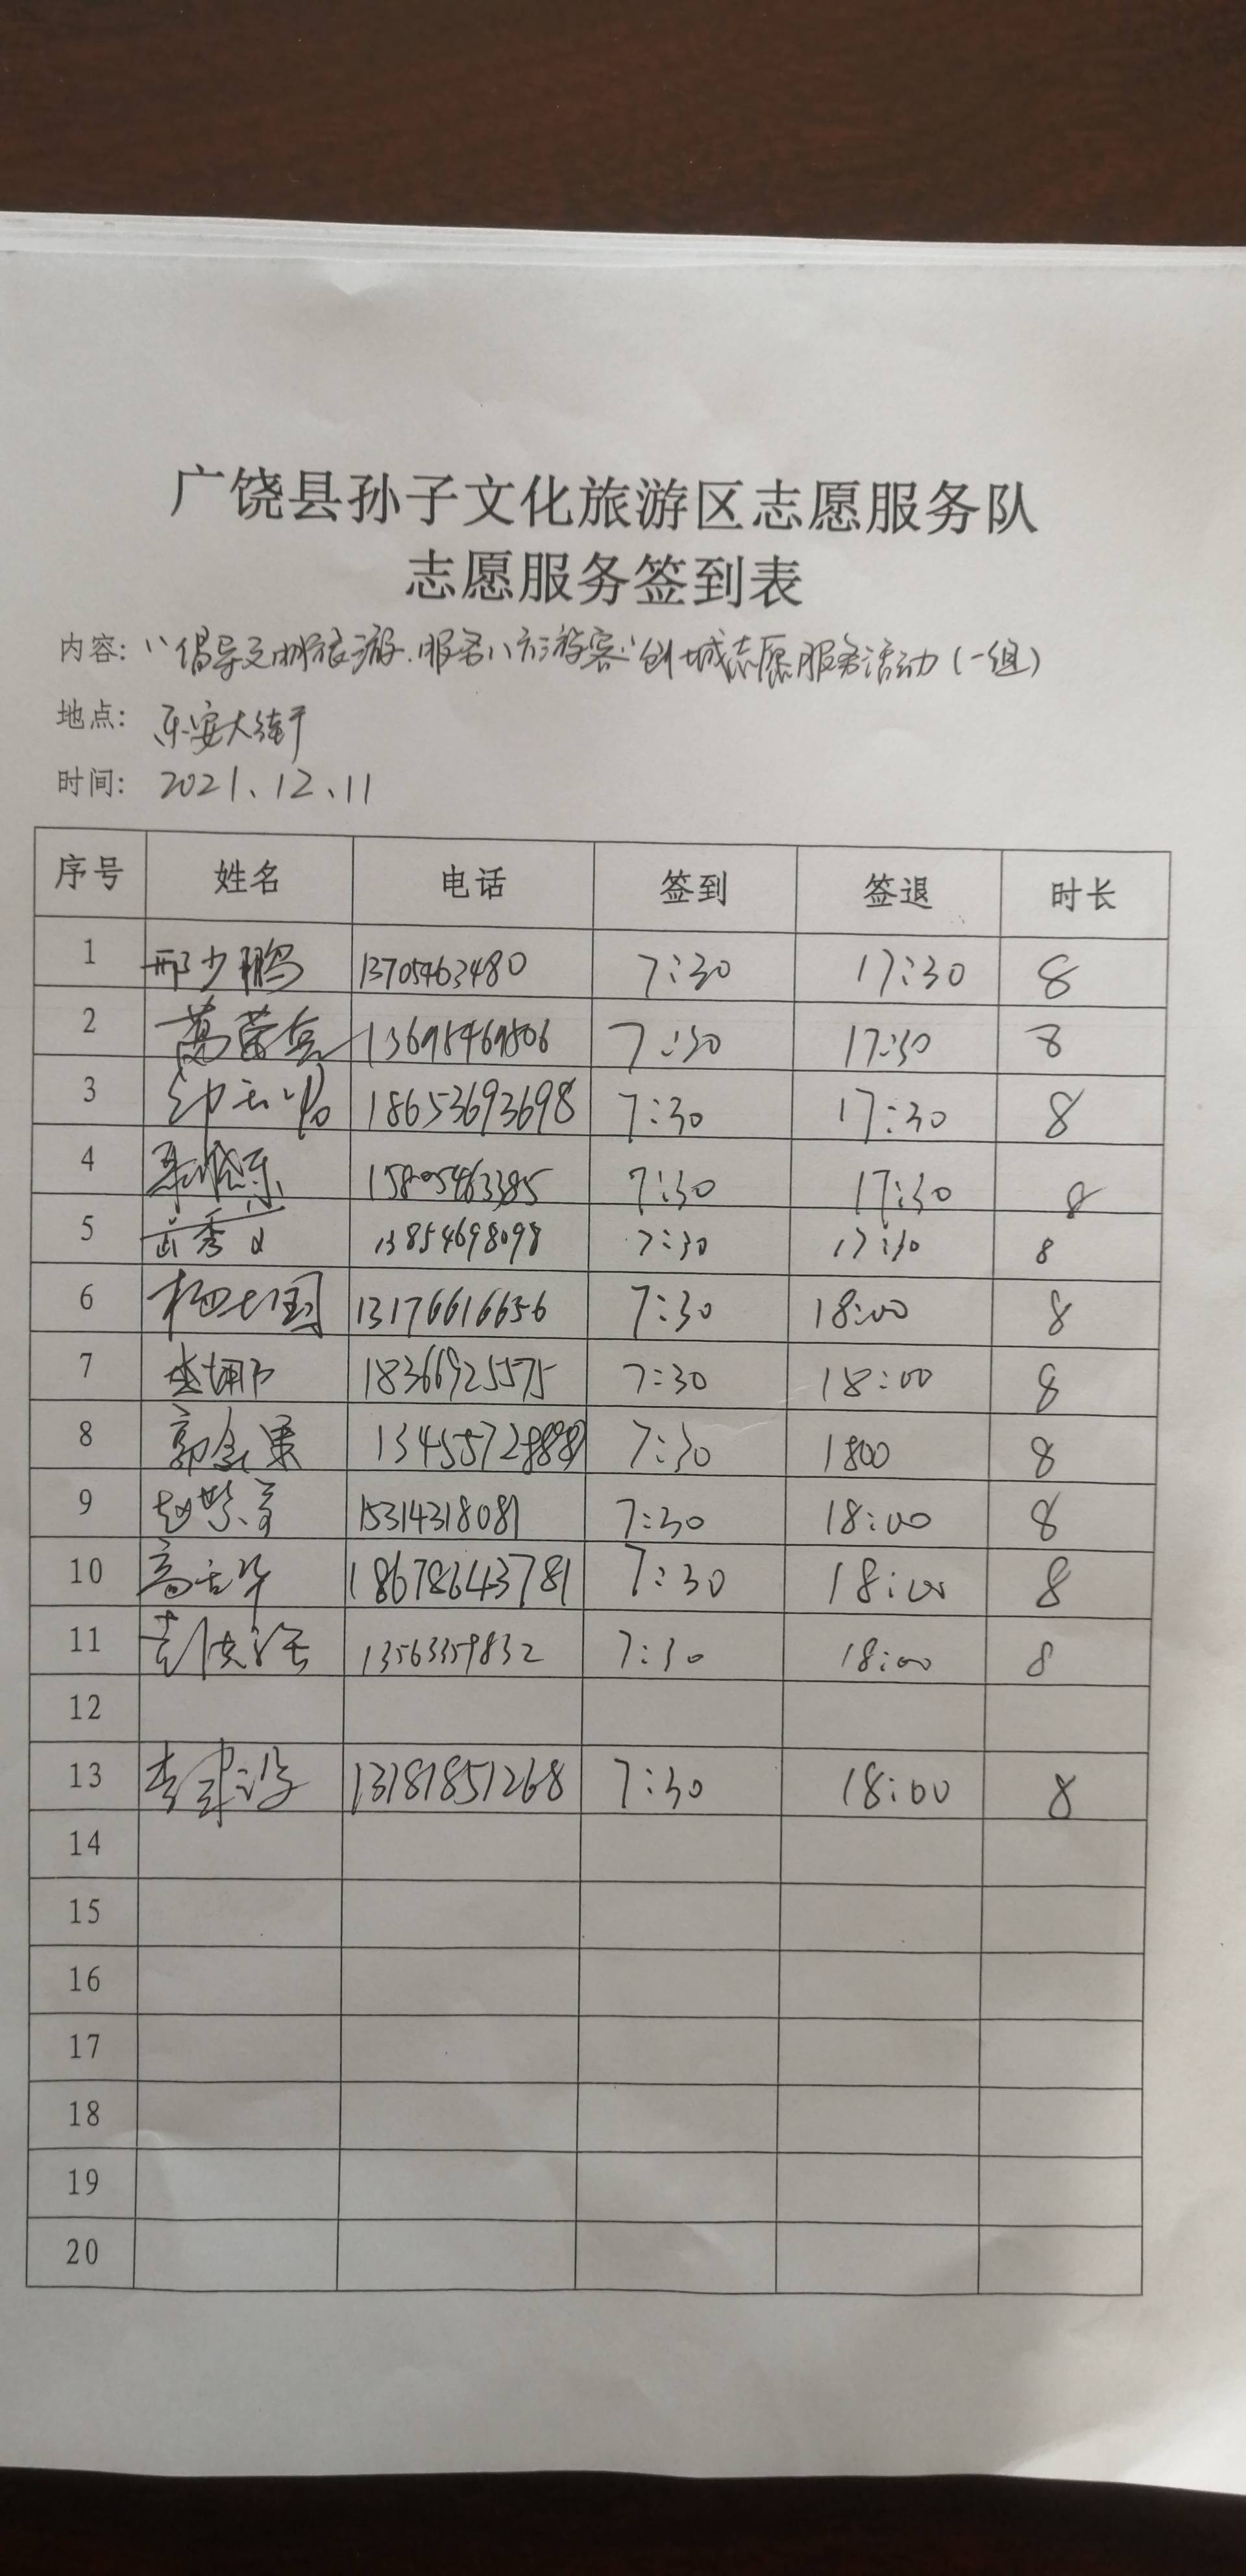 广饶县孙子文化旅游区志愿服务队
志愿服务签到表
内容: “倡导文明旅游.服务八方游客”创城志愿服务活动(一组)
地点: 乐安大街
时间: 2021、12、11
序号 姓名 电话 签到 签退 时长
1 邢少鹏 13705463480 7:30 17:30 8
2 7:30 17:30 8
3 18653693698 7:30 17:30 8
4 15805463385 7:30 17:30 8
5 武秀 13854698098 7:30 17:30 8
6 13176616656 7:30 18:00 8
7 18366925575 7:30 18:00 8
8 郭金果 7:30 1800 8
9 赵 15314318081 7:30 18:00 8
10 高 18678643781 7:30 18:00 8
11 13563359832 7:30 18:00 8
12
13 李建设 13181851268 7:30 18:00 8
14
15
16
17
18
19
20